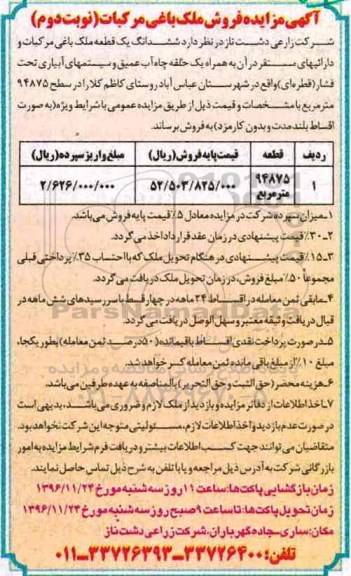 آگهی مزایده فروش ملک باغی مرکبات (نوبت دوم)
شرکت زراعی دشت ناز در نظر دارد ششدانگ یک قطعه ملک باغی مرکبات و
دارائیهای مستقر در آن به همراه یک حلقه چاه آب عمیق و سیستمهای آبیاری تحت
فشار (قطره‌ای) واقع در شهرستان عباس آباد روستای کاظم کلا را در سطح ۹۴۸۷۵
متر مربع با مشخصات و قیمت ذیل از طریق مزایده عمومی با شرایط ویژه (به صورت
اقساط بلند مدت و بدون کارمزد) به فروش برساند.
ردیف قطعه قیمت پایه فروش (ریال) مبلغ واریز سپرده (ریال)
۱ ۹۴۸۷۵ متر مربع ۵۲/۵۰۳/۸۲۵/۰۰۰ ۲/۶۲۶/۰۰۰/۰۰۰
۱- میزان سپرده شرکت در مزایده معادل ۵٪ قیمت پایه فروش می‌باشد.
۲- ۳۰٪ قیمت پیشنهادی در زمان عقد قرارداد اخذ می‌گردد.
۳- ۱۵٪ قیمت پیشنهادی در هنگام تحویل ملک که با احتساب ۳۵٪ پرداختی قبلی
مجموعاً ۵۰٪ مبلغ فروش، در زمان تحویل ملک دریافت می‌گردد.
۴- مابقی ثمن معامله در اقساط ۲۴ ماهه در چهار قسط با سررسیدهای شش ماهه در
قبال دریافت وثیقه معتبر و سهل الوصل دریافت می‌گردد.
۵- در صورت پرداخت نقدی اقساط باقیمانده (۵۰ درصد ثمن معامله) بطور یکجا،
مبلغ ۱۰٪ از مبلغ باقی مانده ثمن معامله کسر خواهد شد.
۶- هزینه محضر (حق الثبت و حق التحریر) بالمناصفه به عهده طرفین می‌باشد.
۷- اخذ اطلاعات از دفاتر مزایده و بازدید از ملک لازم و ضروری می‌باشد، بدیهی است
در صورت عدم بازدید و اخذ اطلاعات لازم، مسئولیتی متوجه این شرکت نخواهد بود.
متقاضیان می‌توانند جهت کسب اطلاعات بیشتر و دریافت فرم شرایط مزایده به امور
بازرگانی شرکت به آدرس ذیل مراجعه و یا با تلفن به شرح ذیل تماس حاصل نمایند.
زمان بازگشایی پاکت‌ها: ساعت ۱۱ روز سه شنبه مورخ ۱۳۹۶/۱۱/۲۴
زمان تحویل پاکت‌ها: تا ساعت ۹ صبح روز سه شنبه مورخ ۱۳۹۶/۱۱/۲۴
مکان: ساری سجاده گهرباران، شرکت زراعی دشت ناز
تلفن: ۳۳۷۲۶۴۰۰-۳۳۷۲۶۳۹۳-۰۱۱
ParsNamadData